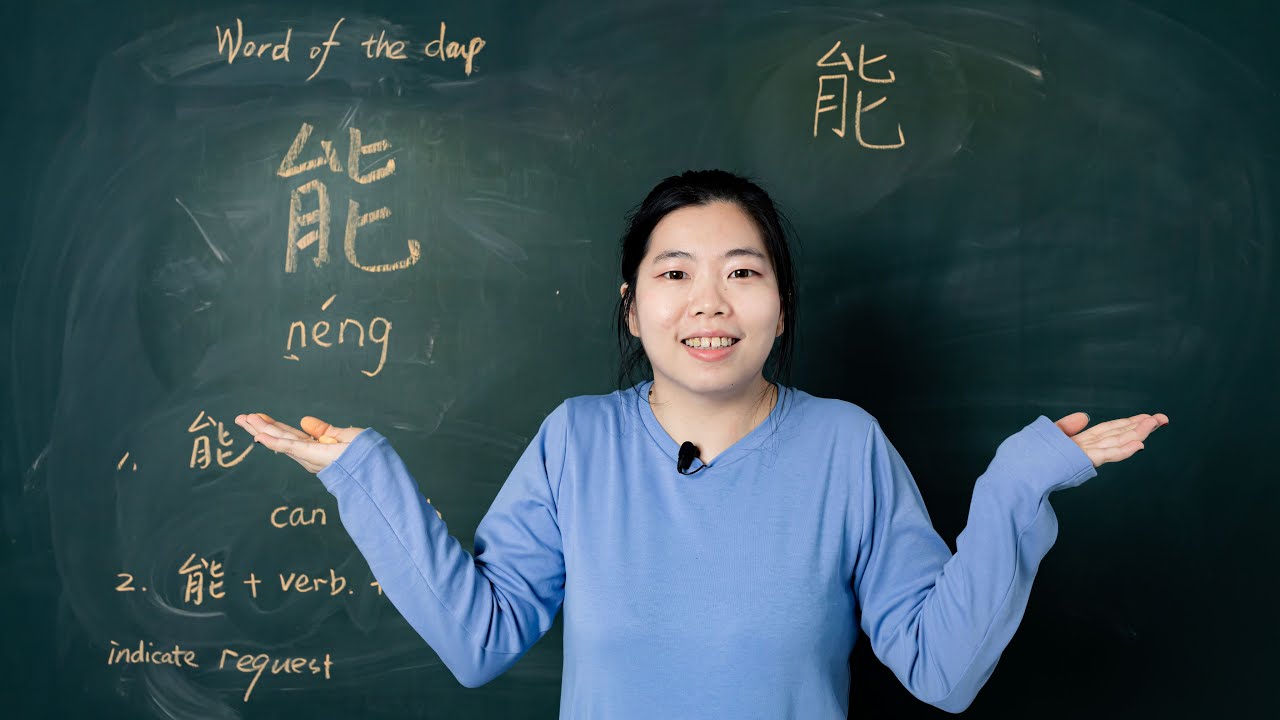 Word of the day
能
néng
1. 能
can
2. 能 + verb. +
indicate request
能